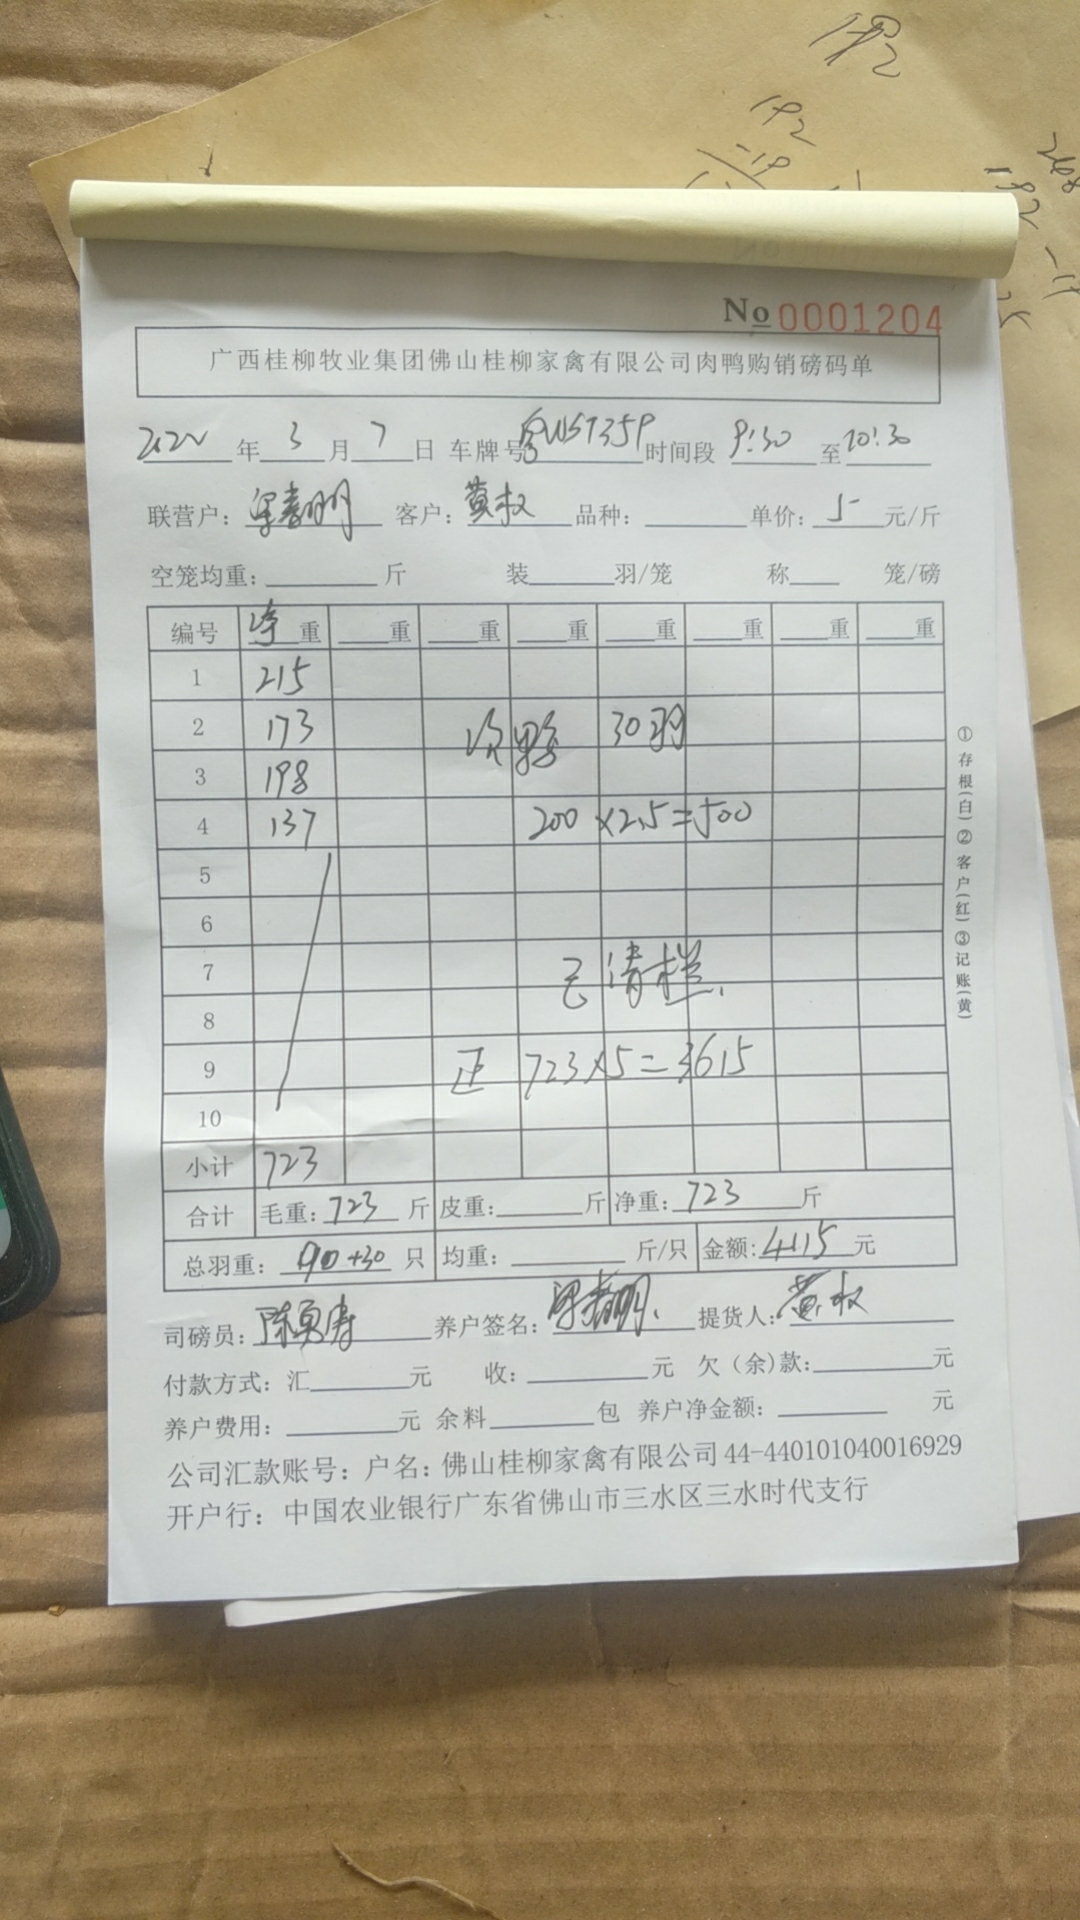 192
192
-19
268
192
-19
No 0001204
广西桂柳牧业集团佛山桂柳家禽有限公司肉鸭购销磅码单
2022年3月7日 车牌号 时间段 9:30至10:30
联营户: 客户:黄权 品种: 单价:5元/斤
空笼均重: 斤 装 羽/笼 称 笼/磅
编号 净重 重 重 重 重 重 重 重
1 215
2 173 次鸭 30羽
3 198
4 137 200×2.5=500
5
6
7 已清栏.
8
9 正 723×5=3615
10
小计 723
合计 毛重:723斤 皮重: 斤 净重:723斤
总羽重:90+30只 均重: 斤/只 金额:4115元
司磅员: 养户签名: 提货人:黄权
付款方式:汇 元 收: 元 欠(余)款: 元
养户费用: 元 余料 包 养户净金额: 元
公司汇款账号:户名:佛山桂柳家禽有限公司44-440101040016929
开户行:中国农业银行广东省佛山市三水区三水时代支行
①存根(白)②客户(红)③记账(黄)